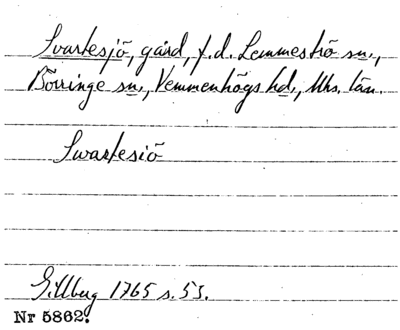 Svartesjö, gård, f.d. Lemmeströ sn.,
Börringe sn., Vemmenhögs hd., Mhs. län.
Swartesiö
Gillberg 1765 s. 53.
Nr 5862.